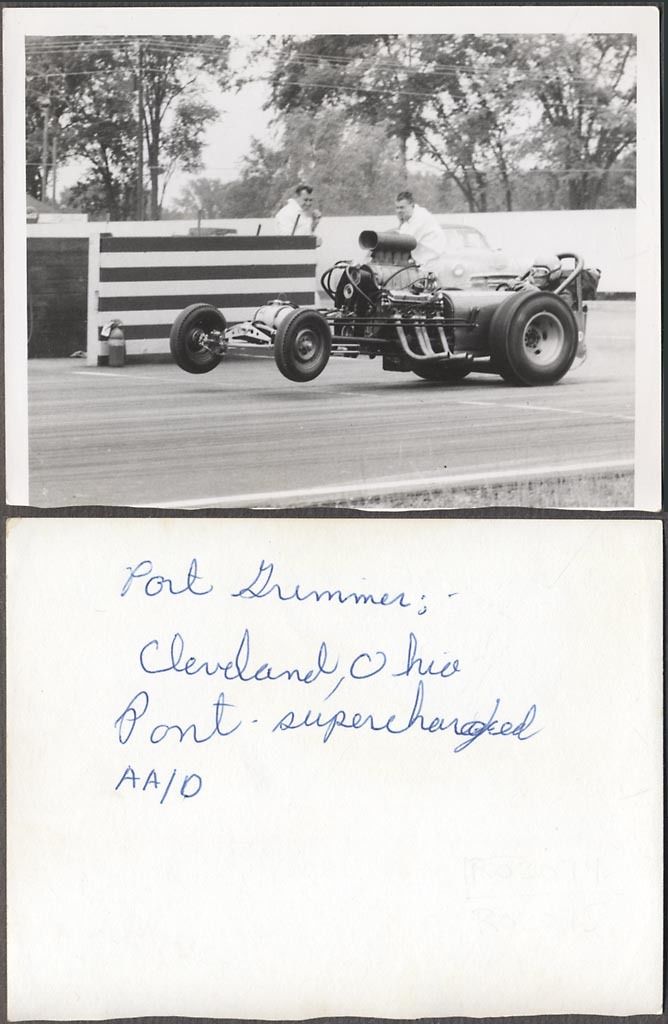 Port Grimmer; -
Cleveland, Ohio
Pont - supercharged
AA/D